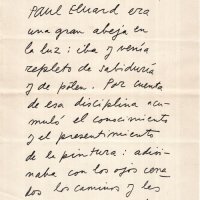 PAUL Eluard era
una gran abeja en
la luz: iba y venía
repleto de sabiduría
y de pólen. Por cuenta
de esa disciplina acu-
muló el conocimiento
y el presentimiento
de la pintura: adivi-
naba con los ojos cerra
dos los caminos y les